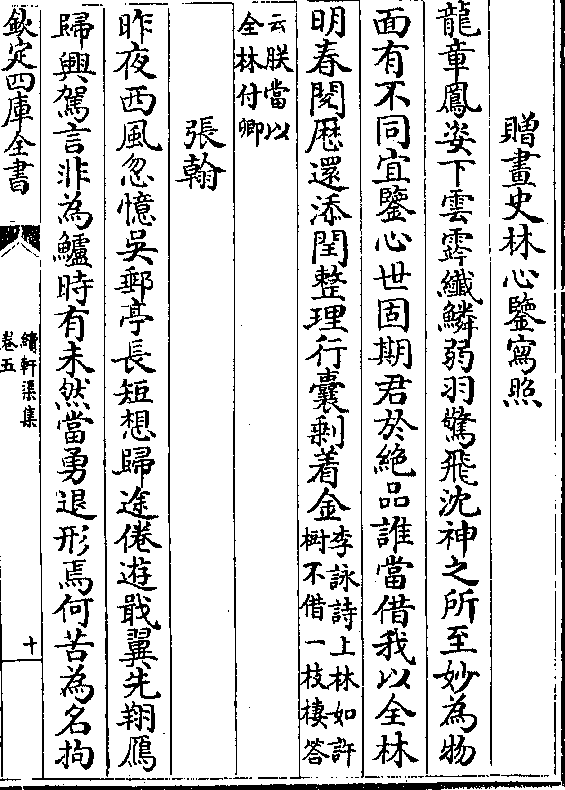 贈畫史林心鑒寫照
龍章鳳姿下雲霄纖鱗弱羽驚飛沈神之所至妙為物
面有不同宜鑒心世固期君於絶品誰當借我以全林
明春閱厯還添閏整理行囊剩着金李詠詩上林如許
樹不借一枝棲答
云朕當以
全林付卿
張翰
昨夜西風忽憶吳郵亭長短想歸途倦遊戢翼先翔鴈
歸興駕言非為鱸時有未然當勇退形焉何苦為名拘
欽定四庫全書
續軒渠集
卷五
十